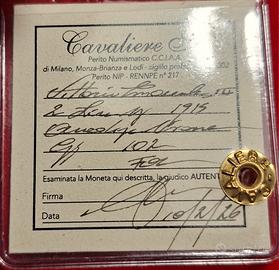 Cavaliere
Perito Numismatico C.C.I.A.A.
di Milano, Monza-Brianza e Lodi - sigillo 002
Perito NIP - RENNPE n° 217
Vittorio Emanuele III
2 Lire 1915
Quadriga
Gig 102
FDC
Esaminata la Moneta qui descritta, la giudico AUTENT
Firma
Data 10/2/26